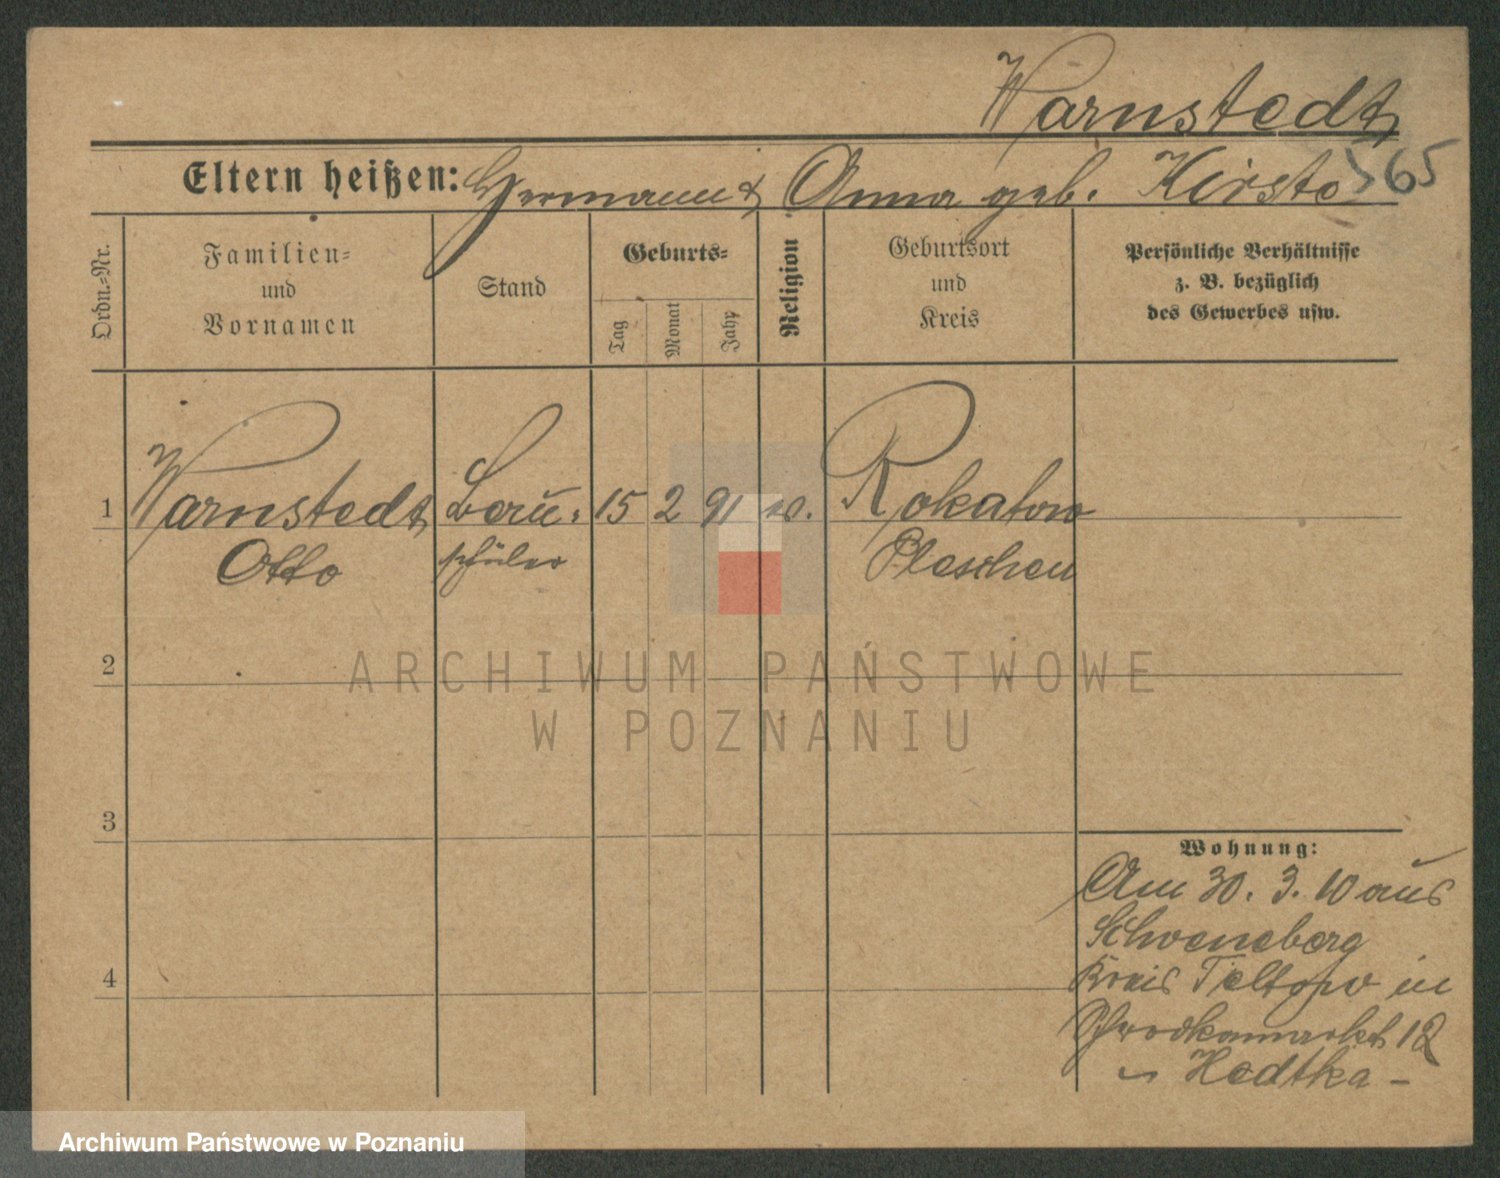 Warnstedt
565
Eltern heißen: Hermann & Anna geb. Kirste
Ordn.=Nr.
Familien=
und
Vornamen
Stand
Geburts=
Tag
Monat
Jahr
Religion
Geburtsort
und
Kreis
Persönliche Verhältnisse
z. B. bezüglich
des Gewerbes usw.
1 Warnstedt Bau= 15 2 91 ev. Rokatow
Otto schüler Pleschen
2
3
4
Wohnung:
Am 30. 3. 10 aus
Schoeneberg
Kreis Teltow in
Schrodkamarkt 12
Hedtka –
ARCHIWUM PAŃSTWOWE
W POZNANIU
Archiwum Państwowe w Poznaniu